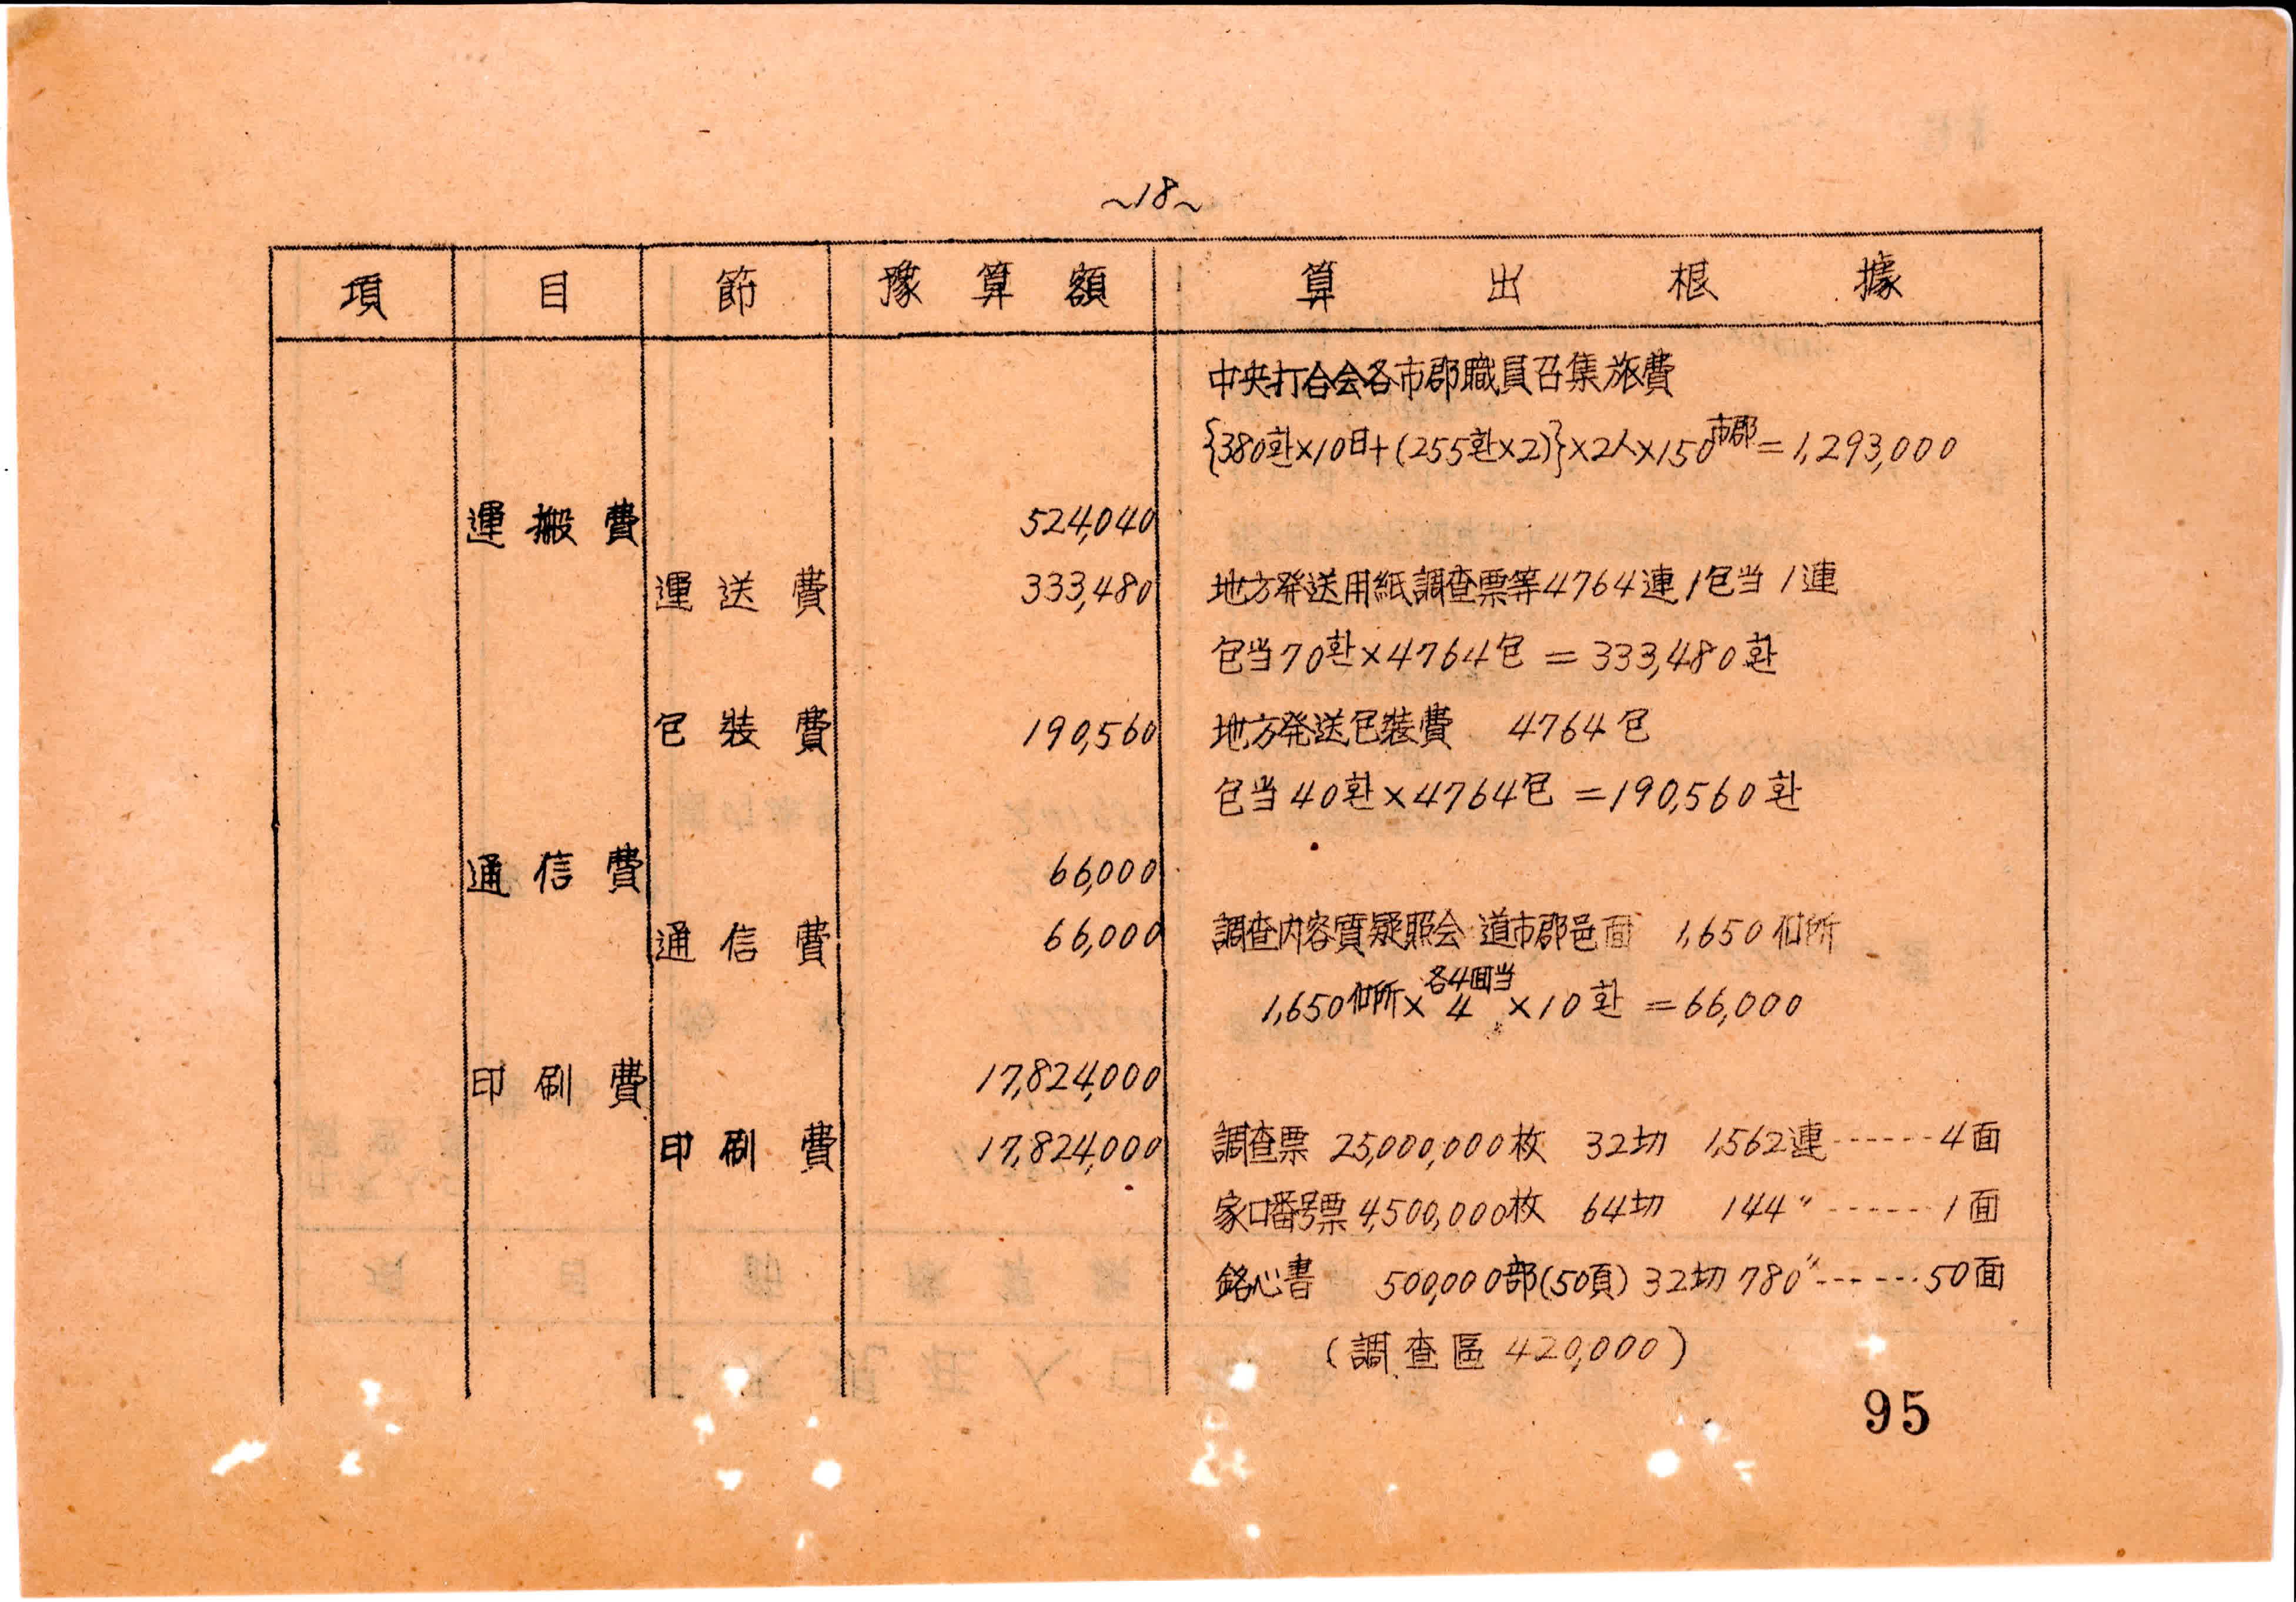 ~18~
項 目 節 豫算額 算出根據
中央打合会各市郡職員召集旅費
{380환×10日+(255환×2)}×2人×150市郡=1,293,000
運搬費 524,040
運送費 333,480 地方発送用紙調査票等4764連1包当1連
包当70환×4764包 = 333,480환
包装費 190,560 地方発送包装費 4764包
包当40환×4764包 =190,560환
通信費 66,000
通信費 66,000 調査内容質疑照会 道市郡邑面 1,650個所
各4回当
1,650個所× 4 ×10환 =66,000
印刷費 17,824,000
印刷費 17,824,000 調査票 25,000,000枚 32切 1,562連------4面
家口番号票 4,500,000枚 64切 144〃------1面
銘心書 500,000部(50頁) 32切 780〃------50面
(調査區 420,000)
95